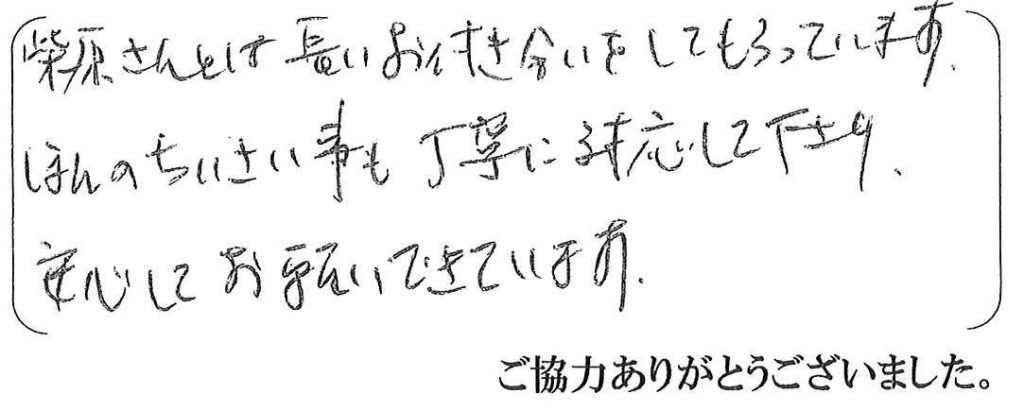 柴原さんとは長いお付き合いをしてもらっています。
ほんのちいさい事も丁寧に対応して下さり、
安心してお願いできています。
ご協力ありがとうございました。